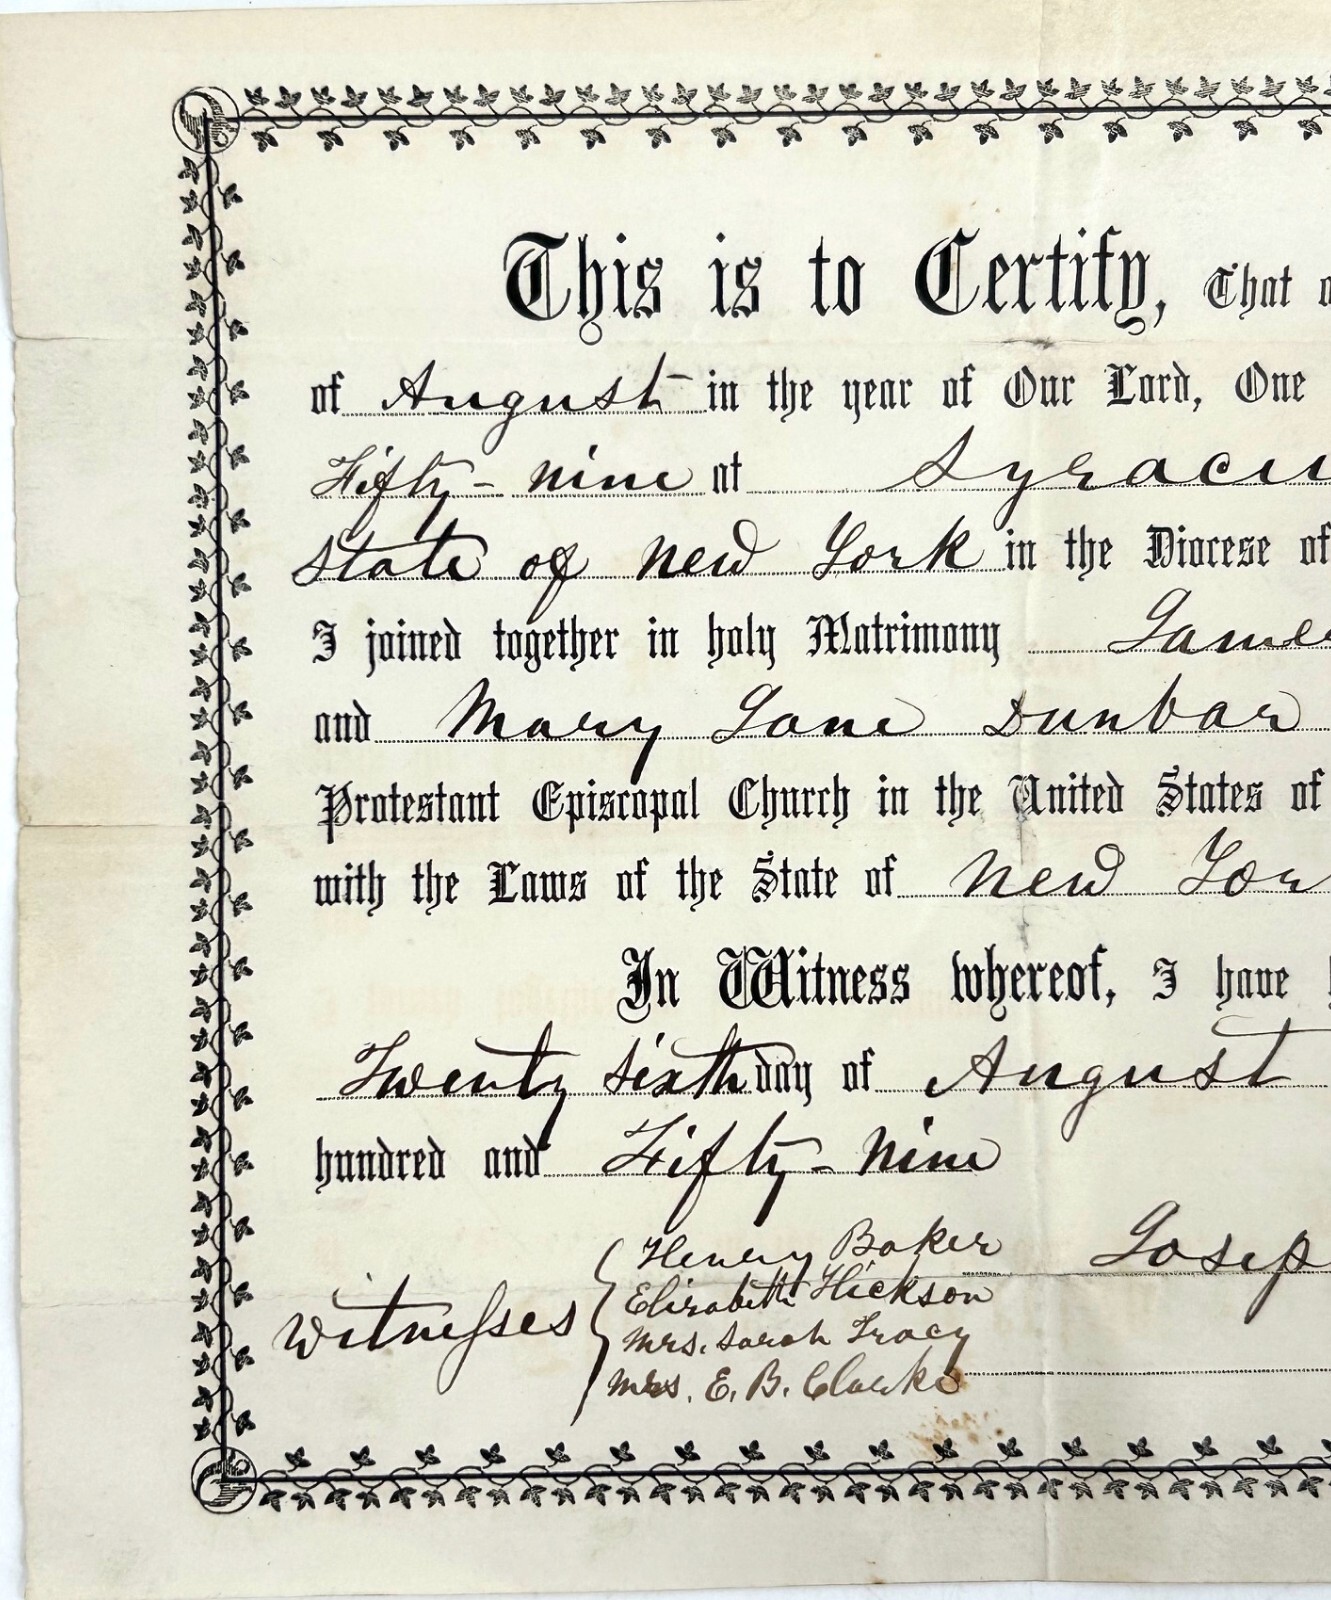 This is to Certify, That
of August in the year of Our Lord, One
Fifty-nine at Syracu
State of New York in the Diocese of
I joined together in holy Matrimony James
and Mary Jane Dunbar
Protestant Episcopal Church in the United States of
with the Laws of the State of New Yor
In Witness whereof, I have
Twenty Sixth day of August
hundred and Fifty-Nine
Witnesses Henery Baker Josep
Elizabeth Hickson
Mrs. Sarah Tracy
Mrs. E. B. Clarke